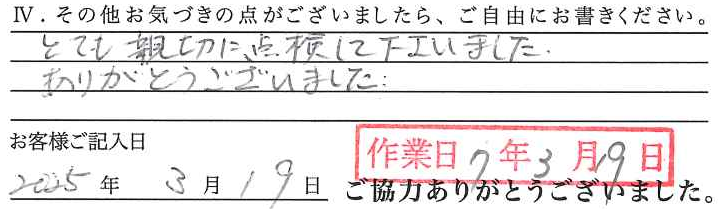 Ⅳ．その他お気づきの点がございましたら、ご自由にお書きください。
とても親切に、点検して下さいました.
ありがとうございました.
お客様ご記入日
作業日 7年3月19日
2025年 3月19日
ご協力ありがとうございました。